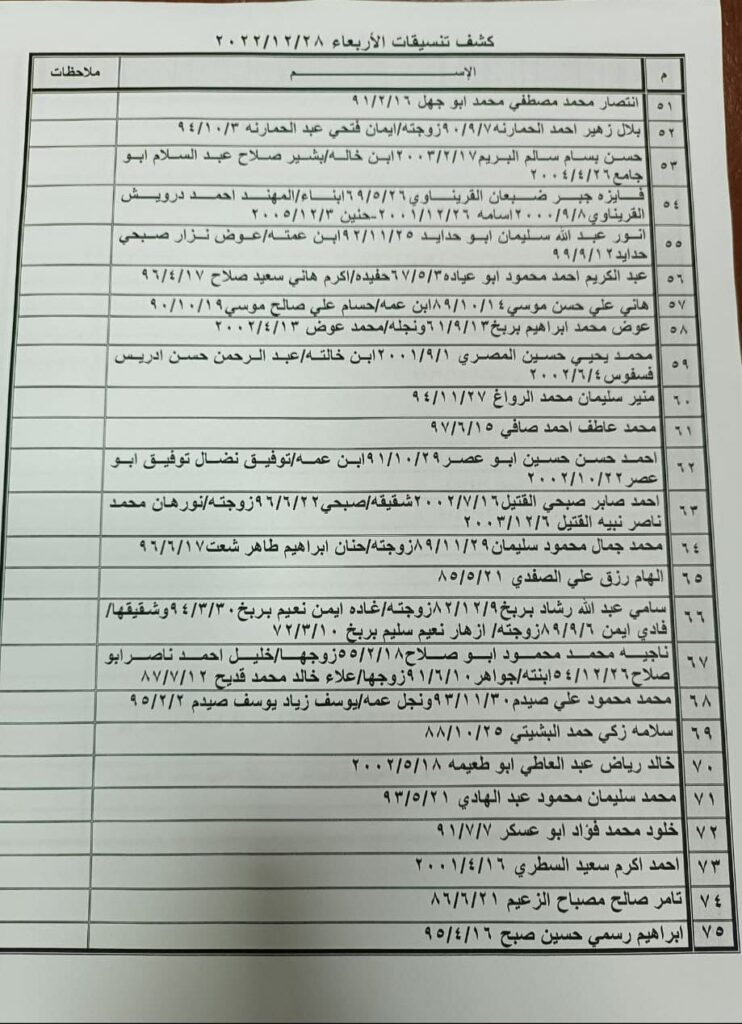 كشف تنسيقات الأربعاء ٢٠٢٢/١٢/٢٨
م الإســـم ملاحظات
٥١ انتصار محمد مصطفي محمد ابو جهل ٩١/٢/١٦
٥٢ بلال زهير احمد الحمارنه٩٠/٩/٧زوجته/ايمان فتحي عبد الحمارنه ٩٤/١٠/٣
٥٣ حسن بسام سالم البريم٢٠٠٣/٢/١٧ابن خاله/بشير صلاح عبد السلام ابو
جامع٢٠٠٤/٤/٢٦
٥٤ فايزه جبر ضبعان القريناوي٦٩/٥/٢٦ابناء/المهند احمد درويش
القريناوي٢٠٠٠/٩/٨اسامه ٢٠٠١/١٢/٢٦-حنين ٢٠٠٥/١٢/٣
٥٥ انور عبد الله سليمان ابو حدايد ٩٢/١١/٢٥ابن عمته/عوض نزار صبحي
حدايد٩٩/٩/١٢
٥٦ عبد الكريم احمد محمود ابو عياده٦٧/٥/٣حفيده/اكرم هاني سعيد صلاح ٩٦/٤/١٧
٥٧ هاني علي حسن موسي٨٩/١٠/١٤ابن عمه/حسام علي صالح موسي٩٠/١٠/١٩
٥٨ عوض محمد ابراهيم بربخ٦١/٩/١٣ونجله/محمد عوض ٢٠٠٢/٤/١٣
٥٩ محمد يحيي حسين المصري ٢٠٠١/٩/١ابن خالته/عبد الرحمن حسن ادريس
فسفوس٢٠٠٢/٦/٤
٦٠ منير سليمان محمد الرواغ ٩٤/١١/٢٧
٦١ محمد عاطف احمد صافي ٩٧/٦/١٥
٦٢ احمد حسن حسين ابو عصر٩١/١٠/٢٩ابن عمه/توفيق نضال توفيق ابو
عصر٢٠٠٢/١٠/٢٢
٦٣ احمد صابر صبحي القتيل٢٠٠٢/٧/١٦شقيقه/صبحي٩٦/٦/٢٢زوجته/نورهان محمد
ناصر نبيه القتيل ٢٠٠٣/١٢/٦
٦٤ محمد جمال محمود سليمان٨٩/١١/٢٩زوجته/حنان ابراهيم طاهر شعت٩٦/٦/١٧
٦٥ الهام رزق علي الصفدي ٨٥/٥/٢١
٦٦ سامي عبد الله رشاد بربخ٨٢/١٢/٩زوجته/غاده ايمن نعيم بربخ٩٤/٣/٣٠وشقيقها/
فادي ايمن ٨٩/٩/٦زوجته/ ازهار نعيم سليم بربخ ٧٢/٣/١٠
٦٧ ناجيه محمد محمود ابو صلاح٥٥/٢/١٨زوجها/خليل احمد ناصرابو
صلاح٥٤/١٢/٢٦ابنته/جواهر٩١/٦/١٠زوجها/علاء خالد محمد قديح ٨٧/٧/١٢
٦٨ محمد محمود علي صيدم٩٣/١١/٣٠ونجل عمه/يوسف زياد يوسف صيدم ٩٥/٢/٢
٦٩ سلامه زكي حمد البشيتي ٨٨/١٠/٢٥
٧٠ خالد رياض عبد العاطي ابو طعيمه ٢٠٠٢/٥/١٨
٧١ محمد سليمان محمود عبد الهادي ٩٣/٥/٢١
٧٢ خلود محمد فؤاد ابو عسكر ٩١/٧/٧
٧٣ احمد اكرم سعيد السطري ٢٠٠١/٤/١٦
٧٤ تامر صالح مصباح الزعيم ٨٦/٦/٢١
٧٥ ابراهيم رسمي حسين صبح ٩٥/٤/١٦